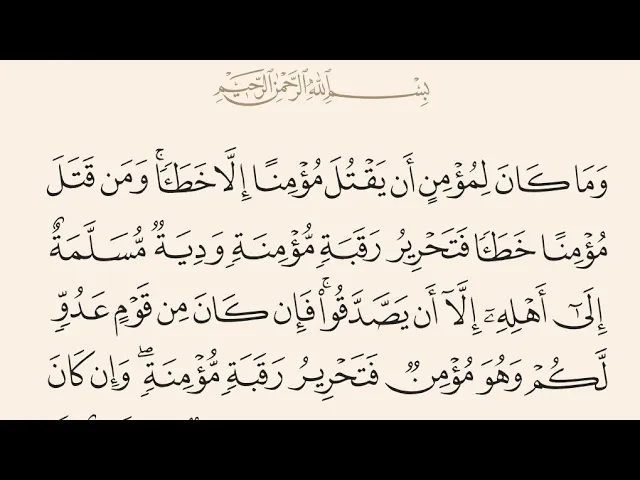 بِسْمِ ٱللَّهِ ٱلرَّحْمَٰنِ ٱلرَّحِيمِ
وَمَا كَانَ لِمُؤْمِنٍ أَن يَقْتُلَ مُؤْمِنًا إِلَّا خَطَـًٔا ۚ وَمَن قَتَلَ
مُؤْمِنًا خَطَـًٔا فَتَحْرِيرُ رَقَبَةٍ مُّؤْمِنَةٍ وَدِيَةٌ مُّسَلَّمَةٌ
إِلَىٰٓ أَهْلِهِۦٓ إِلَّآ أَن يَصَّدَّقُوا۟ ۚ فَإِن كَانَ مِن قَوْمٍ عَدُوٍّ
لَّكُمْ وَهُوَ مُؤْمِنٌ فَتَحْرِيرُ رَقَبَةٍ مُّؤْمِنَةٍ ۖ وَإِن كَانَ